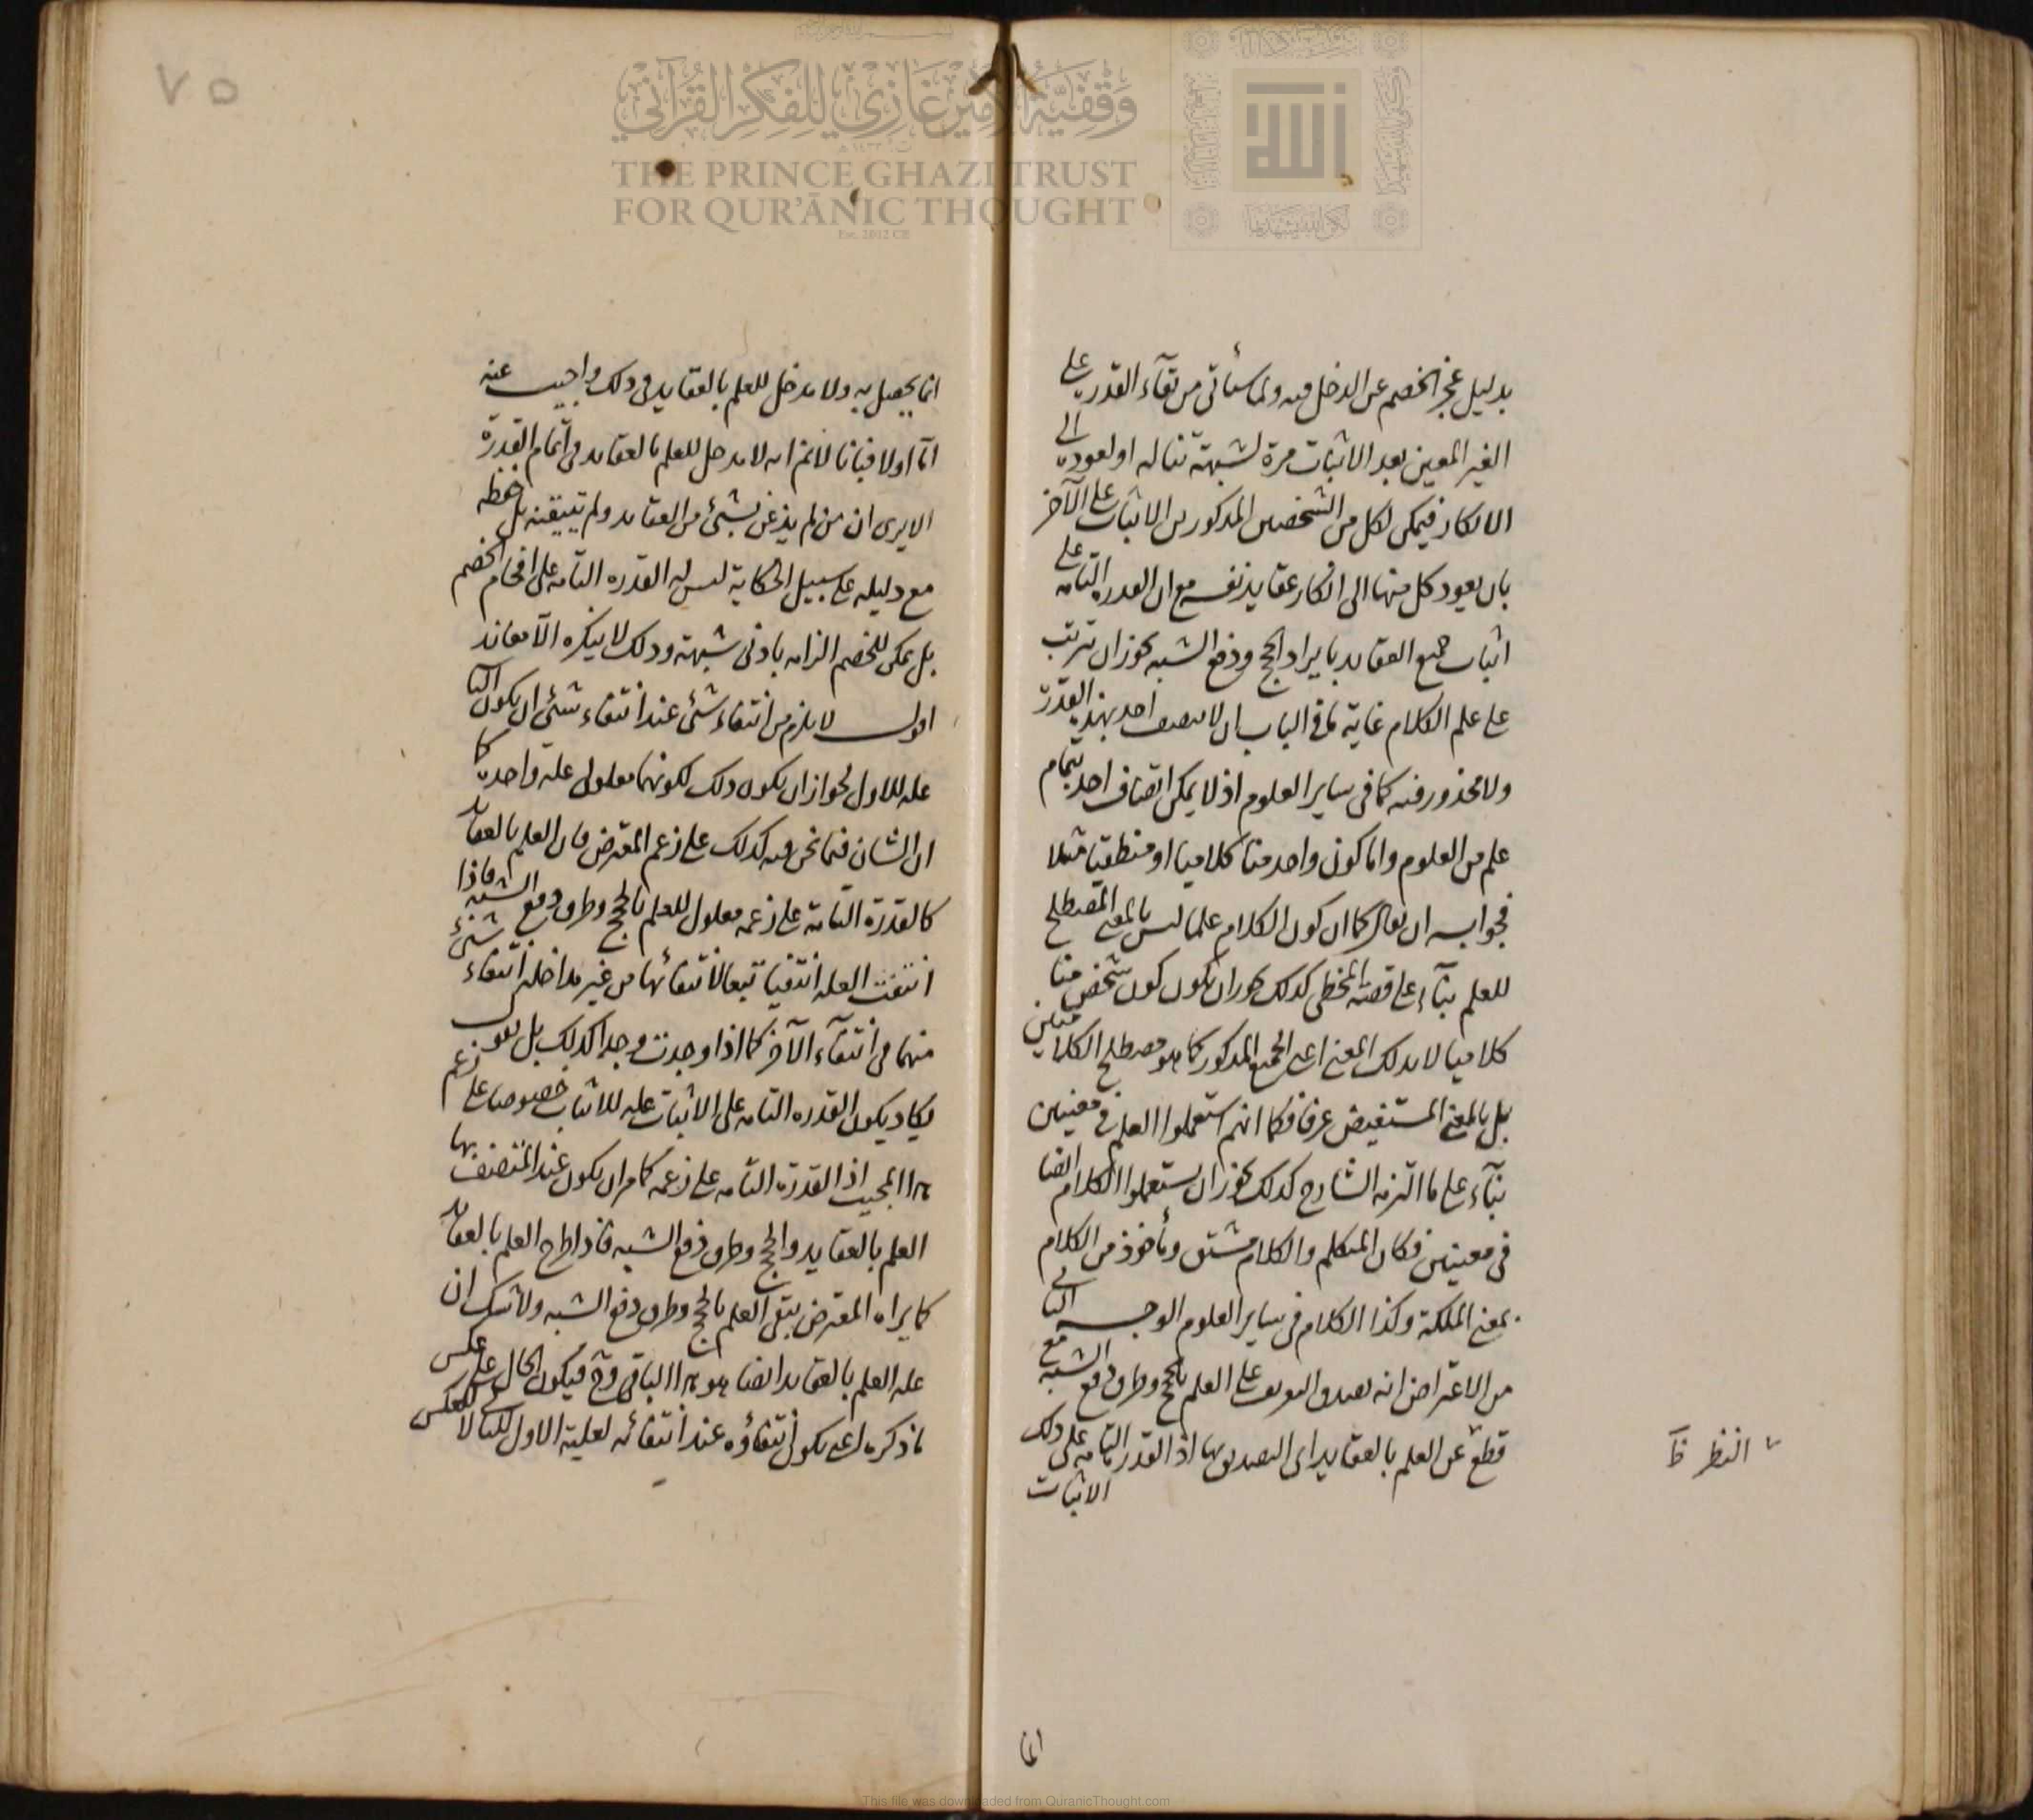 بدليل عجز الخصم عن الدخل فيه ولما سيأتى من بقآء القدرة على
الغير المعين بعد الاثبات مرة لشبهة تناله او لعوده الى
الانكار فيمكن لكل من الشخصين المذكورين الاثبات على الآخر
بان يعود كل منهما الى انكار عقايد نفسه مع ان القدرة التامة على
اثبات جميع العقايد بايراد الحجج ودفع الشبه يجوز ان يترتب
على علم الكلام غاية ما فى الباب ان لا يتصف احد بهذه القدرة
ولا محذور فيه كما فى ساير العلوم اذ لا يمكن اتصاف احد بتمام
علم من العلوم واما كون واحد منا كلاميا او منطقيا مثلا
فجوابه ان يقال كما ان كون الكلام علما ليس بالمعنى المصطلح
للعلم بنآء على قصة المخطى كذلك يجوز ان يكون كون شخص منا
كلاميا لا بذلك المعنى اعنى الجميع المذكور كما هو مصطلح الكلاميين
بل بالمعنى المستفيض عرفا فكما انهم استعملوا العلم فى معنيين
بنآء على ما التزمه الشارح كذلك يجوز ان يستعملوا الكلام ايضا
فى معنيين فكان المتكلم والكلام مشتق ومأخوذ من الكلام
بمعنى الملكة وكذا الكلام فى ساير العلوم الوجه الثانى
من الاعتراض انه يصدق التعريف على العلم بالحجج وطرق دفع الشبه مع
قطع عن العلم بالعقايد اى التصديق بها اذ القدرة التامة على ذلك
الاثبات
النظر ظ
انما
٧٥
انما يحصل به ولا مدخل للعلم بالعقايد فى ذلك واجيب عنه
اما اولا فبانا لا نم انه لا مدخل للعلم بالعقايد فى اتمام القدرة
الا يرى ان من لم يذعن بشئ من العقايد ولم يتيقنه بل حفظه
مع دليله على سبيل الحكاية ليس له القدرة التامة على افحام الخصم
بل يمكن للخصم الزامه بادنى شبهة وذلك لا ينكره الا معاند
اقول لا يلزم من انتفاء شئ عند انتفاء شئ ان يكون الثانى
علة للاول لجواز ان يكون ذلك لكونهما معلولى علة واحدة كما
ان الشان فيما نحن فيه كذلك على زعم المعترض فان العلم بالعقايد
كالقدرة التامة على زعمه معلول للعلم بالحجج وطرق دفع الشبه فاذا
انتفت العلة انتفيا تبعا لانتفائها من غير مداخلة انتفاء شئ
منهما فى انتفآء الآخر كما اذا وجدت وجدا كذلك بل نقول
يكاد يكون القدرة التامة على الاثبات علة للاثبات خصوصا على زعم
هذا المجيب اذ القدرة التامة على زعمه كما مر ان يكون عند المتصف بها
العلم بالعقايد والحجج وطرق دفع الشبه فاذا طرح العلم بالعقايد
كما يراه المعترض بقى العلم بالحجج وطرق دفع الشبه ولا شك ان
علة العلم بالعقايد ايضا هو هذا الباقى وح فيكون الحال على عكس
ما ذكره اعنى يكون انتفاؤه عند انتفائه لعلية الاول للثانى لا للعكس
THE PRINCE GHAZI TRUST
FOR QUR'ĀNIC THOUGHT
Est. 2012 CE
وقفية الأمير غازي للفكر القرآني
This file was downloaded from QuranicThought.com